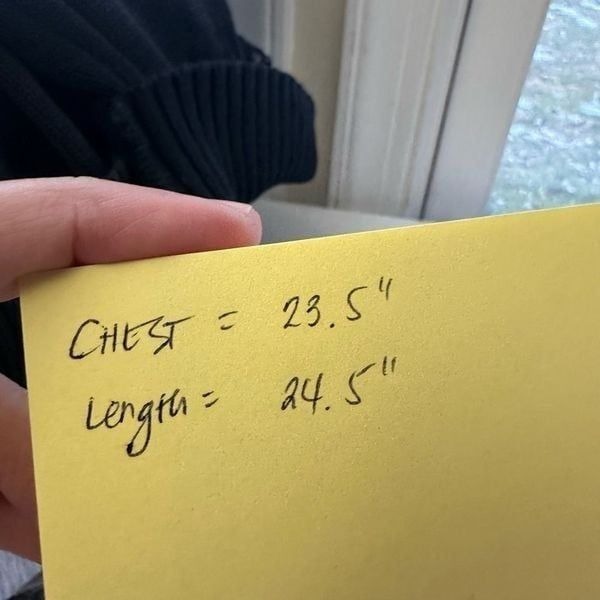 CHEST = 23.5"
Length = 24.5"